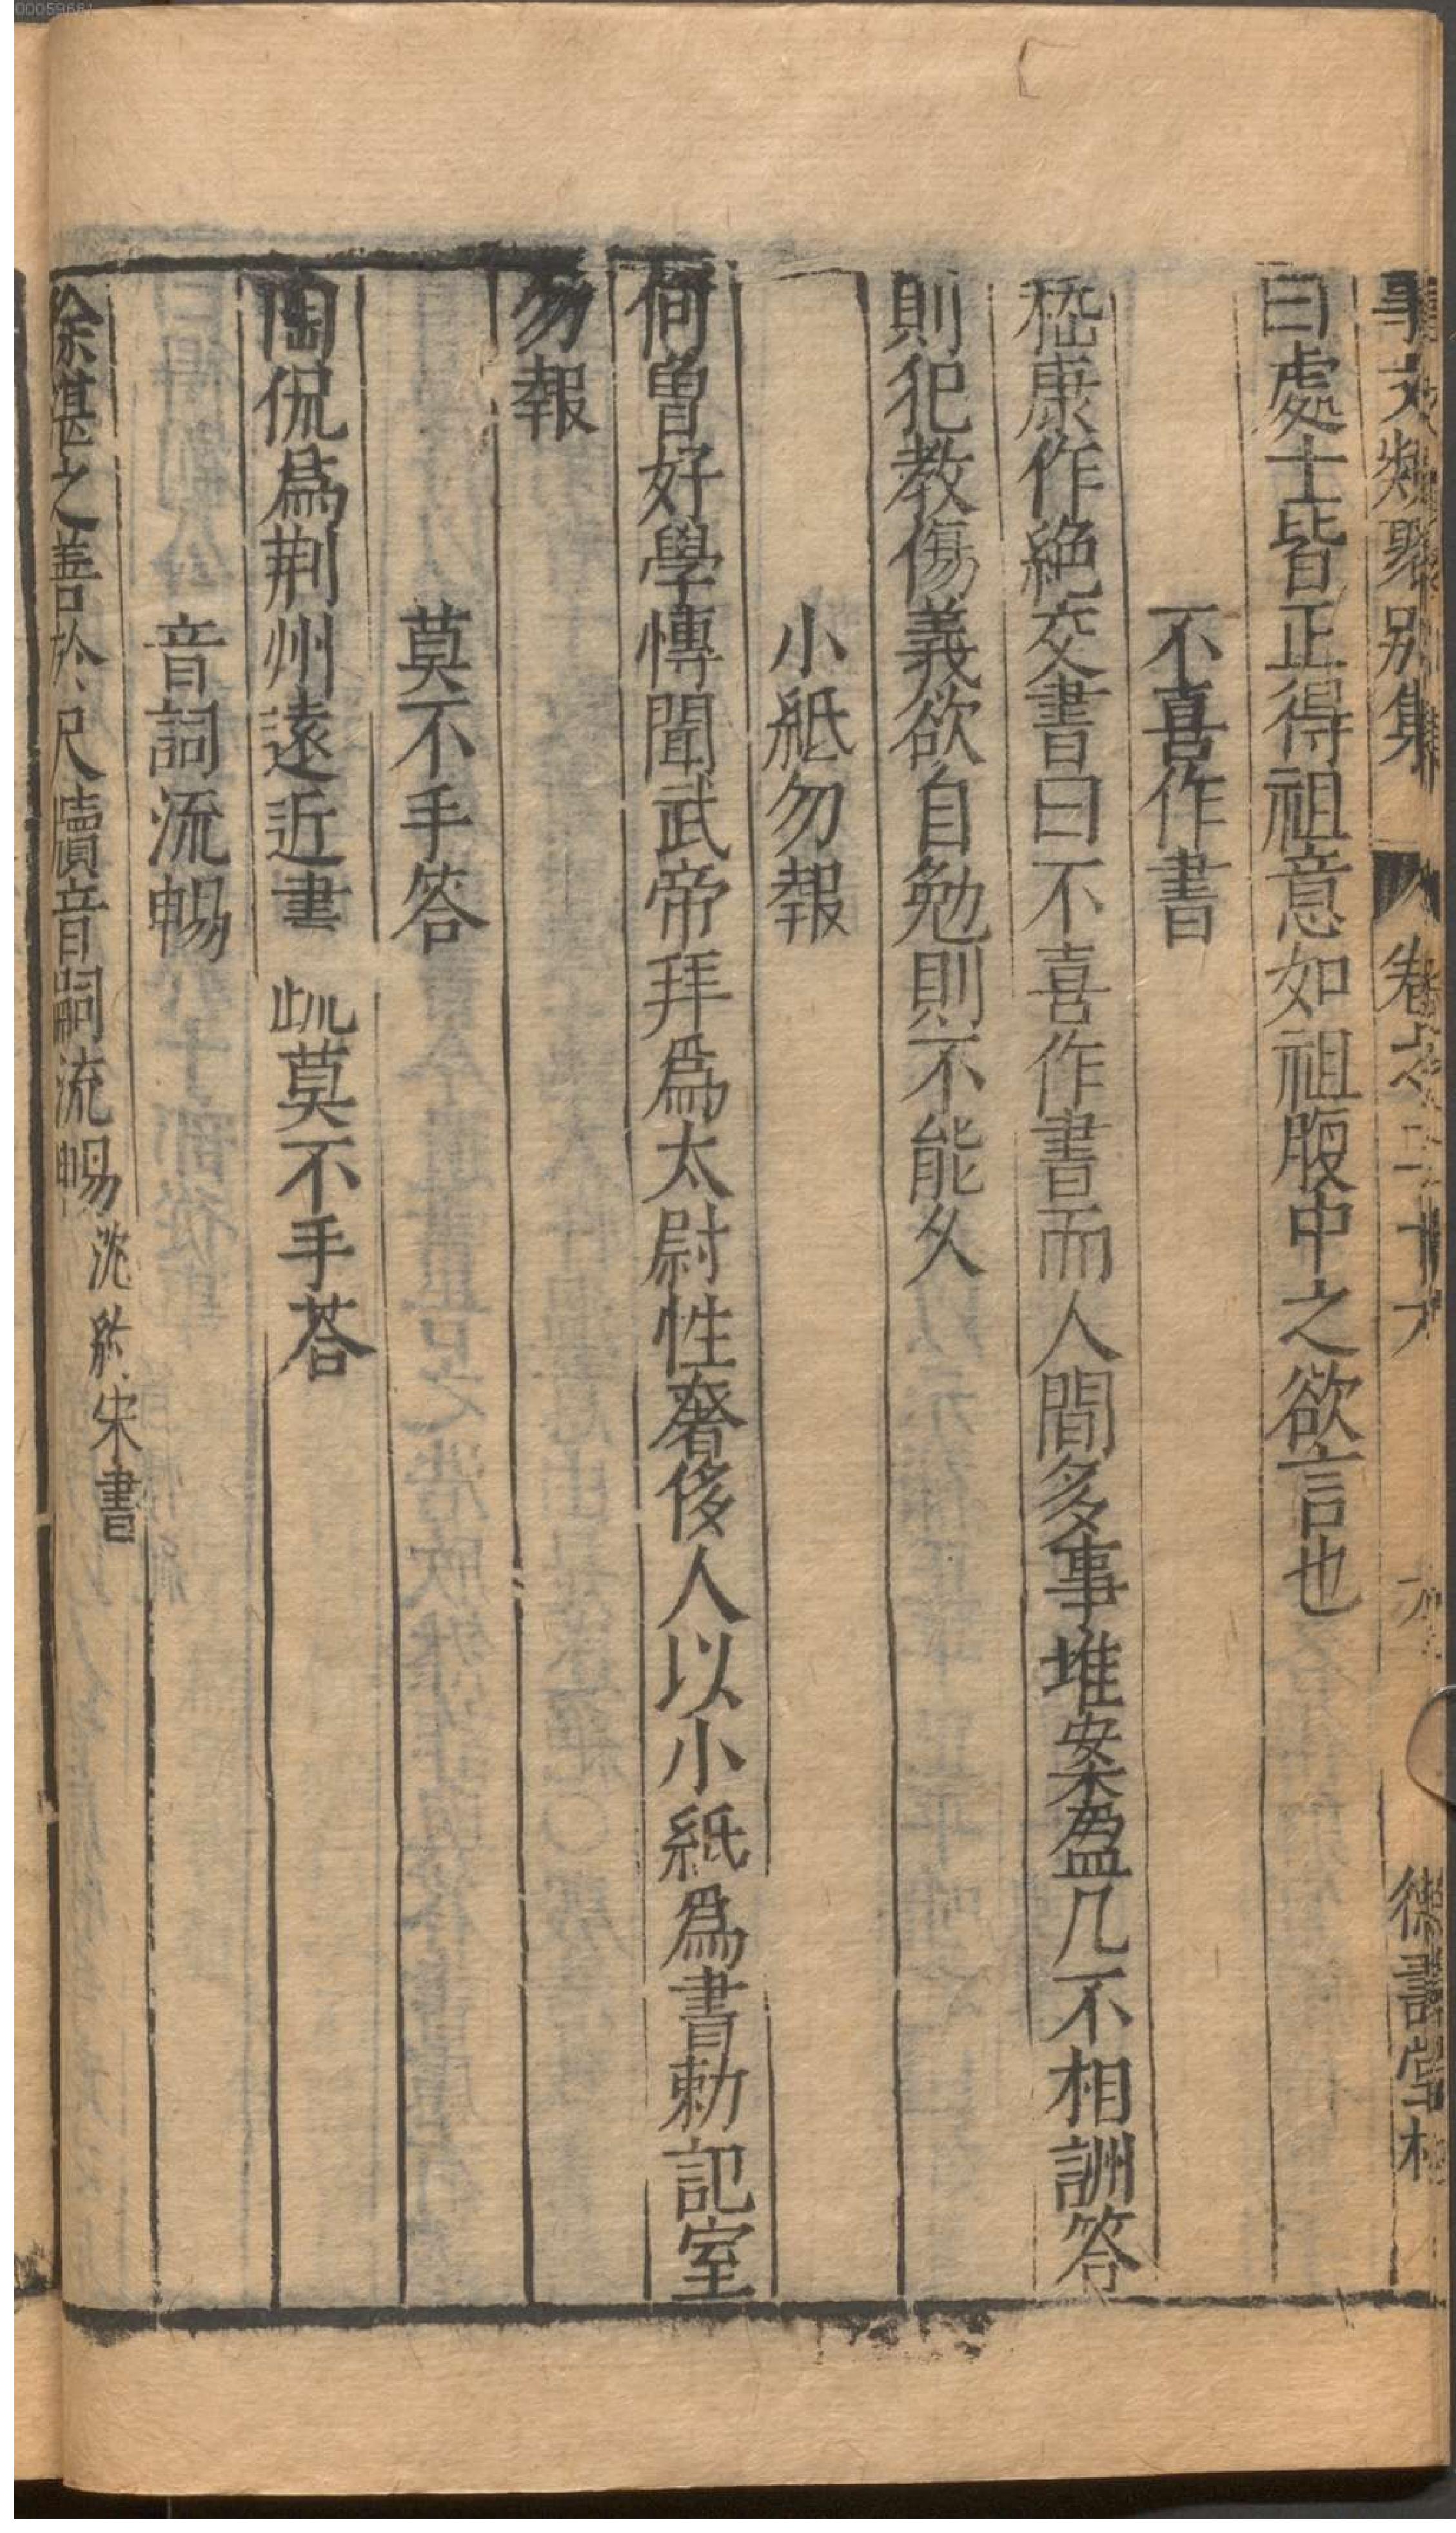 00059661
事文類聚別集 卷之二十六
德壽堂梓
曰處士皆正得祖意如祖腹中之欲言也
不喜作書
嵇康作絶交書曰不喜作書而人間多事堆案盈几不相詶答
則犯教傷義欲自勉則不能久
小紙勿報
何曽好學愽聞武帝拜爲太尉性奢侈人以小紙爲書勅記室
勿報
莫不手答
陶侃爲荆州遠近書䟽莫不手荅
音詞流暢
徐湛之善於尺牘音嗣流暢 沈約宋書